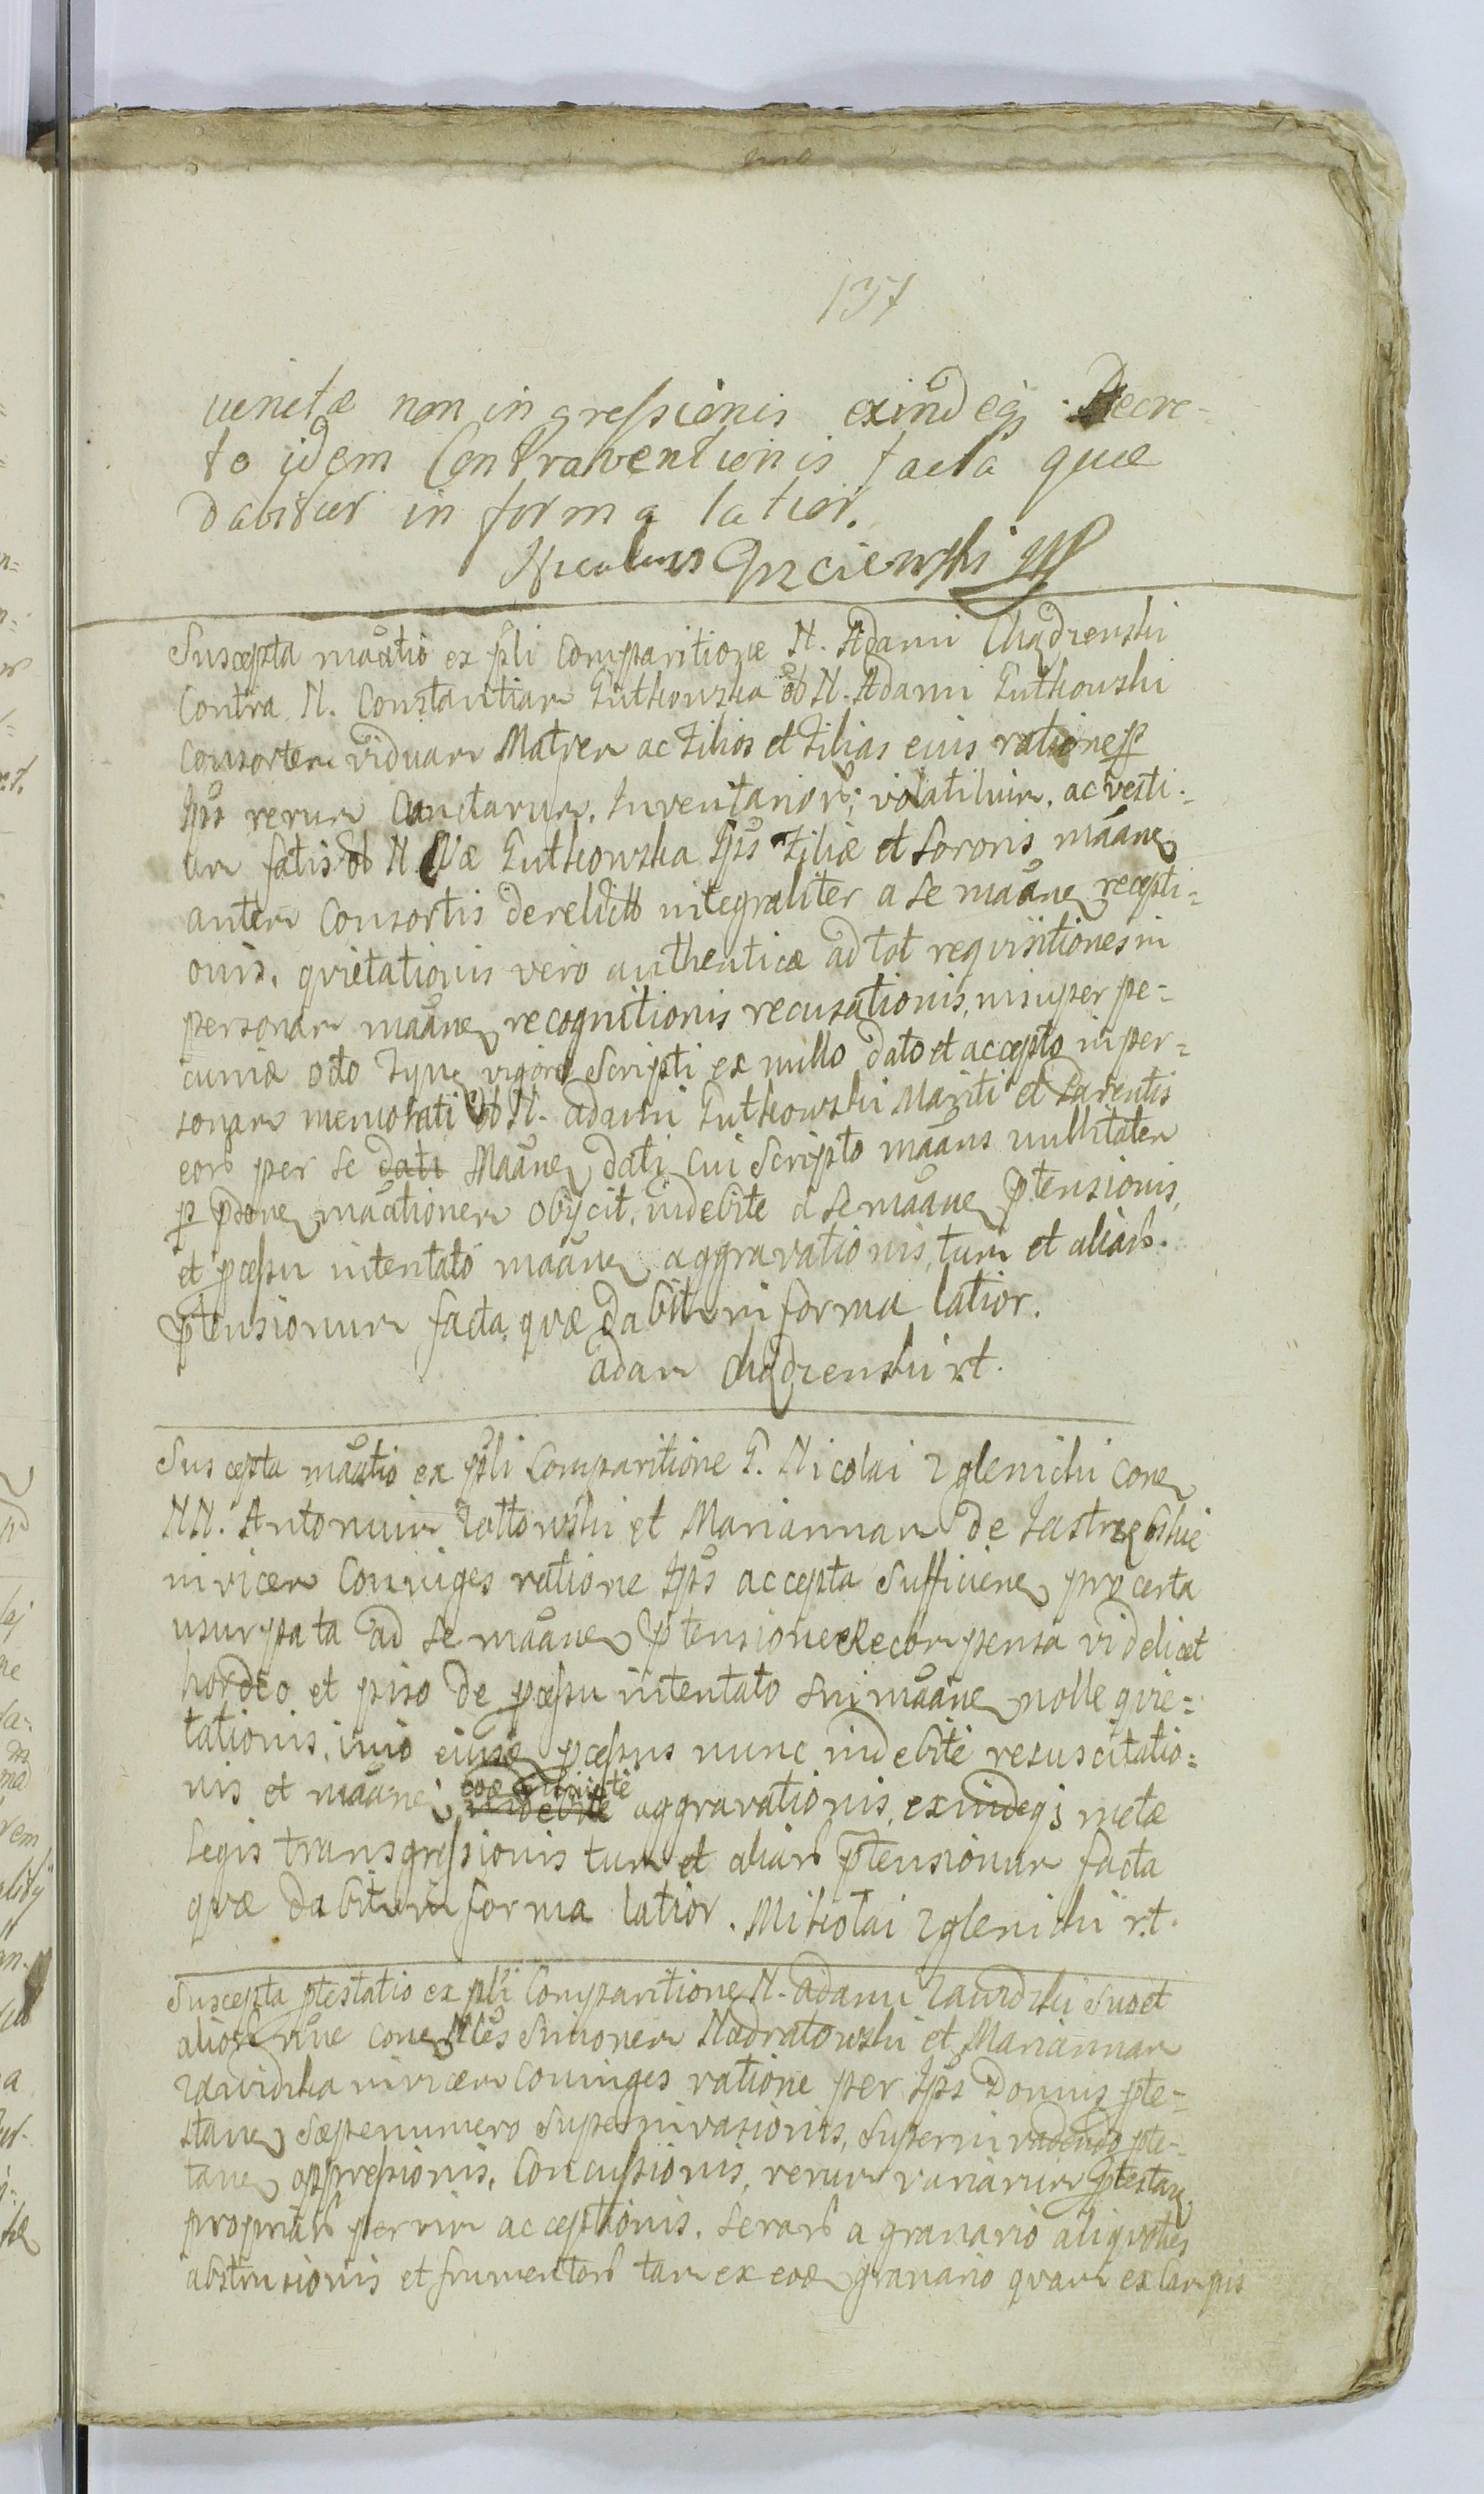 137
venetæ non ingressionis exindeq3 Decre-
to idem Contraventionis facta quæ
dabitur in forma latior.
Nicolaus Gzciewski mp
Suscepta mãatio ex p̃li Comparitione N. Adami Chądzenski
Contra N. Constantiam Gutkowska ol N. Adami Gutkowski
Consortem viduam Matrem ac Filios et Filias eius ratione p
Ips̃ rerum Cunctarum, Inventarior̃, volatilium, ac vesti-
um fatis ol N Evæ Gutkowska Ips̃ Filiæ et Sororis mãane
autem Consortis derelict integraliter a se mãane recepti-
onis, quietationis vero authenticæ ad tot requisitiones in
personam mãane recognitionis recusationis, insuper pe-
cuniæ octo Tynf vigore Scripti ex nullo dato et accepto in per-
sonam memorati ol N. Adami Gutkowski Mariti et Parentis
eor̃ per se dati Mãane dati cui Scripto mãans nullitatem
p p̃one mãationem obijcit, indebite a se mãane p̃tensionis,
et pcessu intentato mãane aggravationis, tum et aliar̃
p̃tensionum facta, quæ dabitur in forma latior.
Adam Chądzenski r.t.
Suscepta mãatio ex p̃li Comparitione G. Nicolai Zglenicki cone
NN. Antonium Zottowski et Mariannam de Jastrzębskie
invicem Coniuges ratione Ips̃ accepta Sufficiene pro certa
usurpata ad se mãane p̃tensione Recompensa videlicet
hordeo et piso de pcessu intentato sui mãane nolle quie-
tationis, imo eiusd pcessus nunc indebite resuscitatio-
nis et mãane indebite aggravationis, exindeq3 metæ
Legis transgressionis tum et aliar̃ p̃tensionum facta
quæ dabitur in forma latior. Mikołai Zglenicki r.t.
Suscepta p̃testatio ex p̃li Comparitione N. Adami Zawidzki Suo et
alior̃ nõe cone Nles Simonem Nadratowski et Mariannam
Zawidzka invicem Coniuges ratione per Ips̃ Domus p̃te-
stane sæpenumero Superinvasionis, Superinvadendo p̃te-
tane oppressionis, Concussionis, rerum variarum p̃testane
propriar̃ per vim acceptionis, serar̃ a granario aliquoties
abstrusionis et frumentor̃ tam ex eod granario quam ex campis